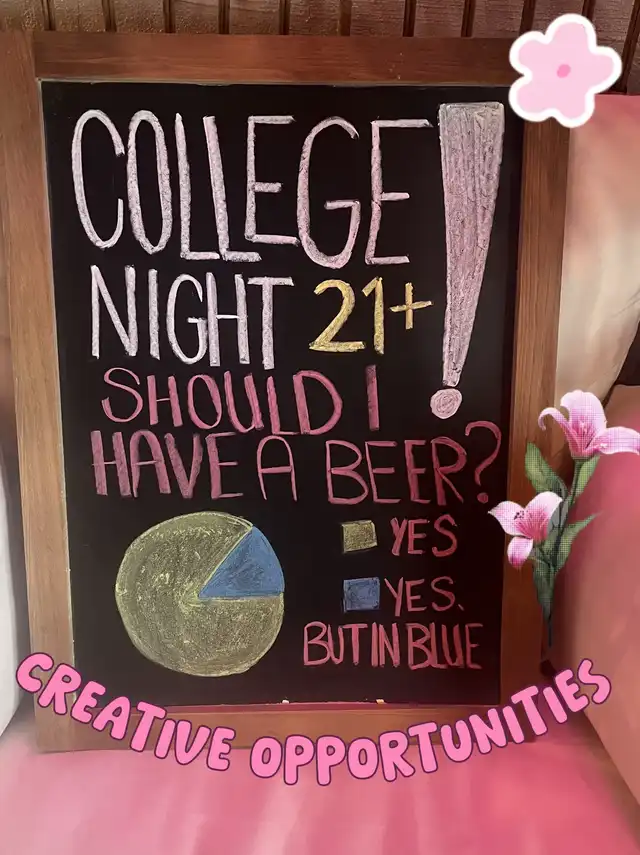 COLLEGE!
NIGHT 21+
SHOULD I
HAVE A BEER?
YES
YES.
BUT IN BLUE
CREATIVE OPPORTUNITIES